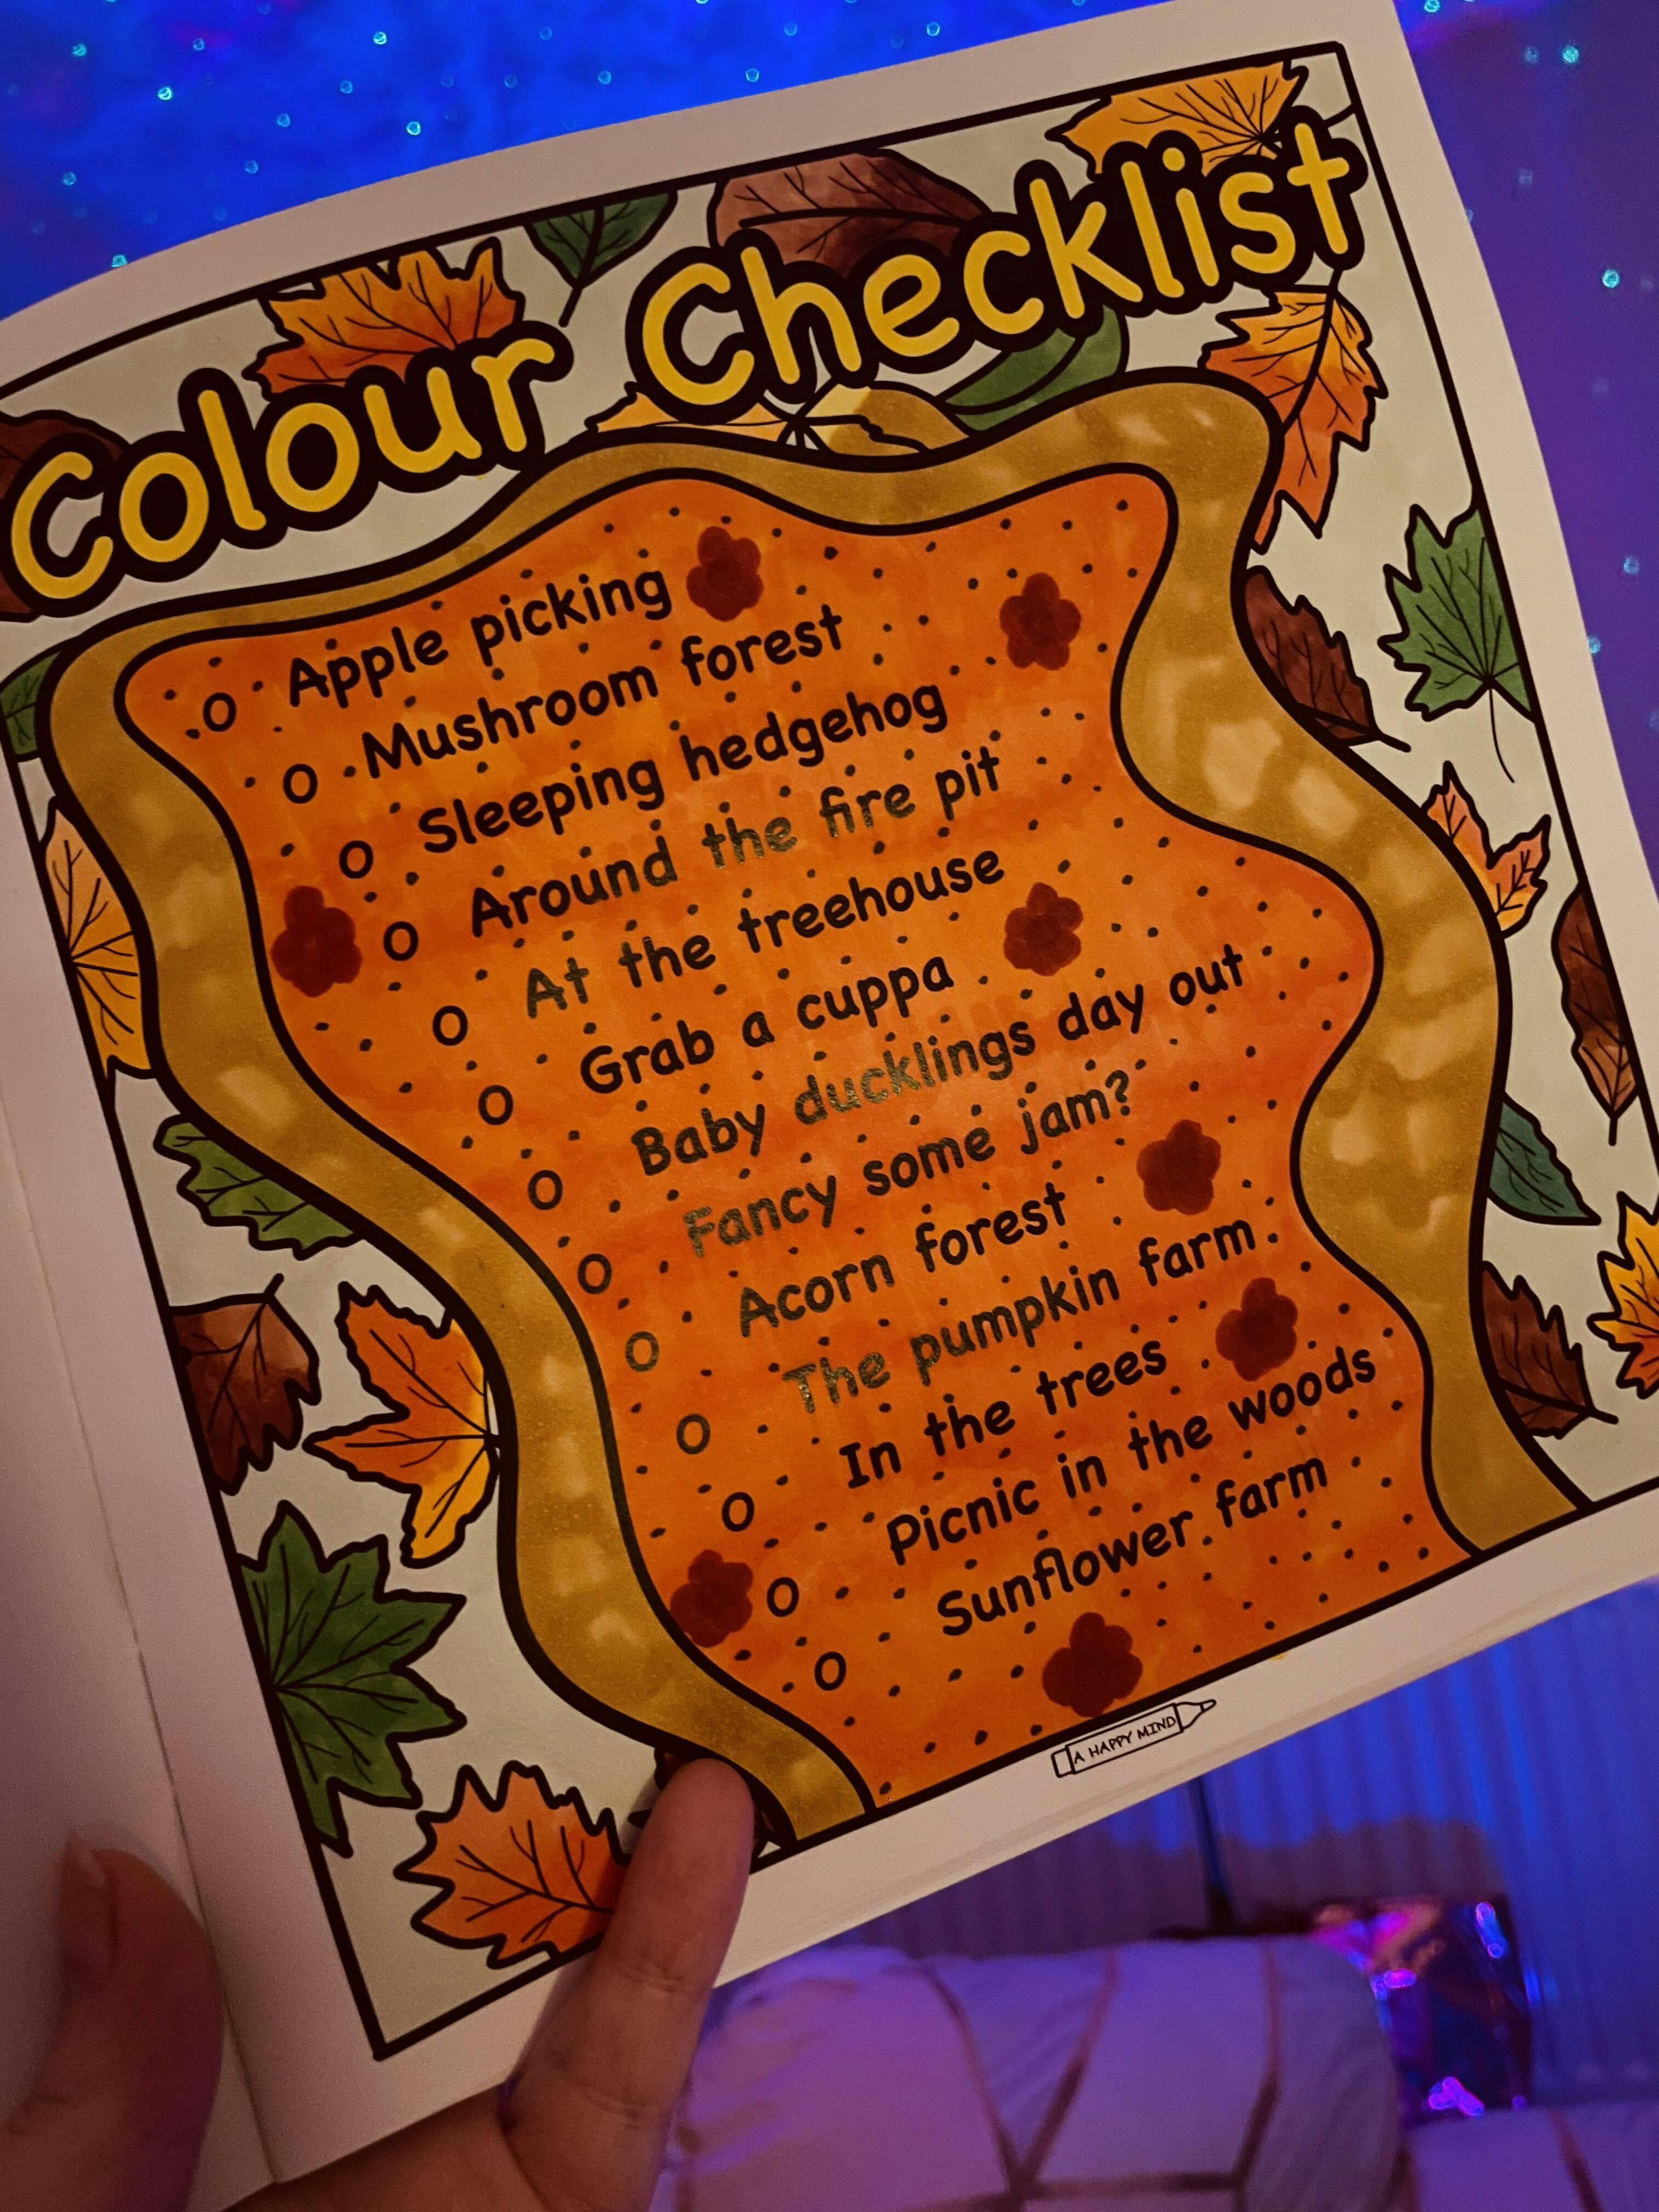 Colour Checklist
Apple picking
Mushroom forest
Sleeping hedgehog
Around the fire pit
At the treehouse
Grab a cuppa
Baby ducklings day out
Fancy some jam?
Acorn forest
The pumpkin farm
In the trees
Picnic in the woods
Sunflower farm
A HAPPY MIND